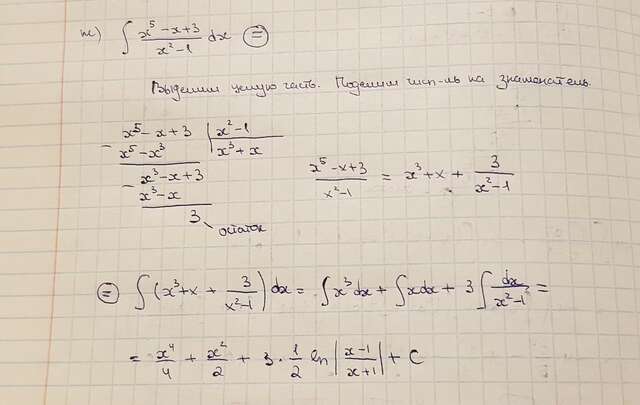 ж) ∫ (x⁵-x+3)/(x²-1) dx =
Выделим целую часть. Поделим числ-ль на знаменатель.
x⁵-x+3 | x²-1
- x⁵-x³ | x³+x
x³-x+3
- x³-x
3 остаток
(x⁵-x+3)/(x²-1) = x³+x + 3/(x²-1)
= ∫ (x³+x + 3/(x²-1)) dx = ∫x³dx + ∫xdx + 3∫ dx/(x²-1²) =
= x⁴/4 + x²/2 + 3·1/2 ln |(x-1)/(x+1)| + C